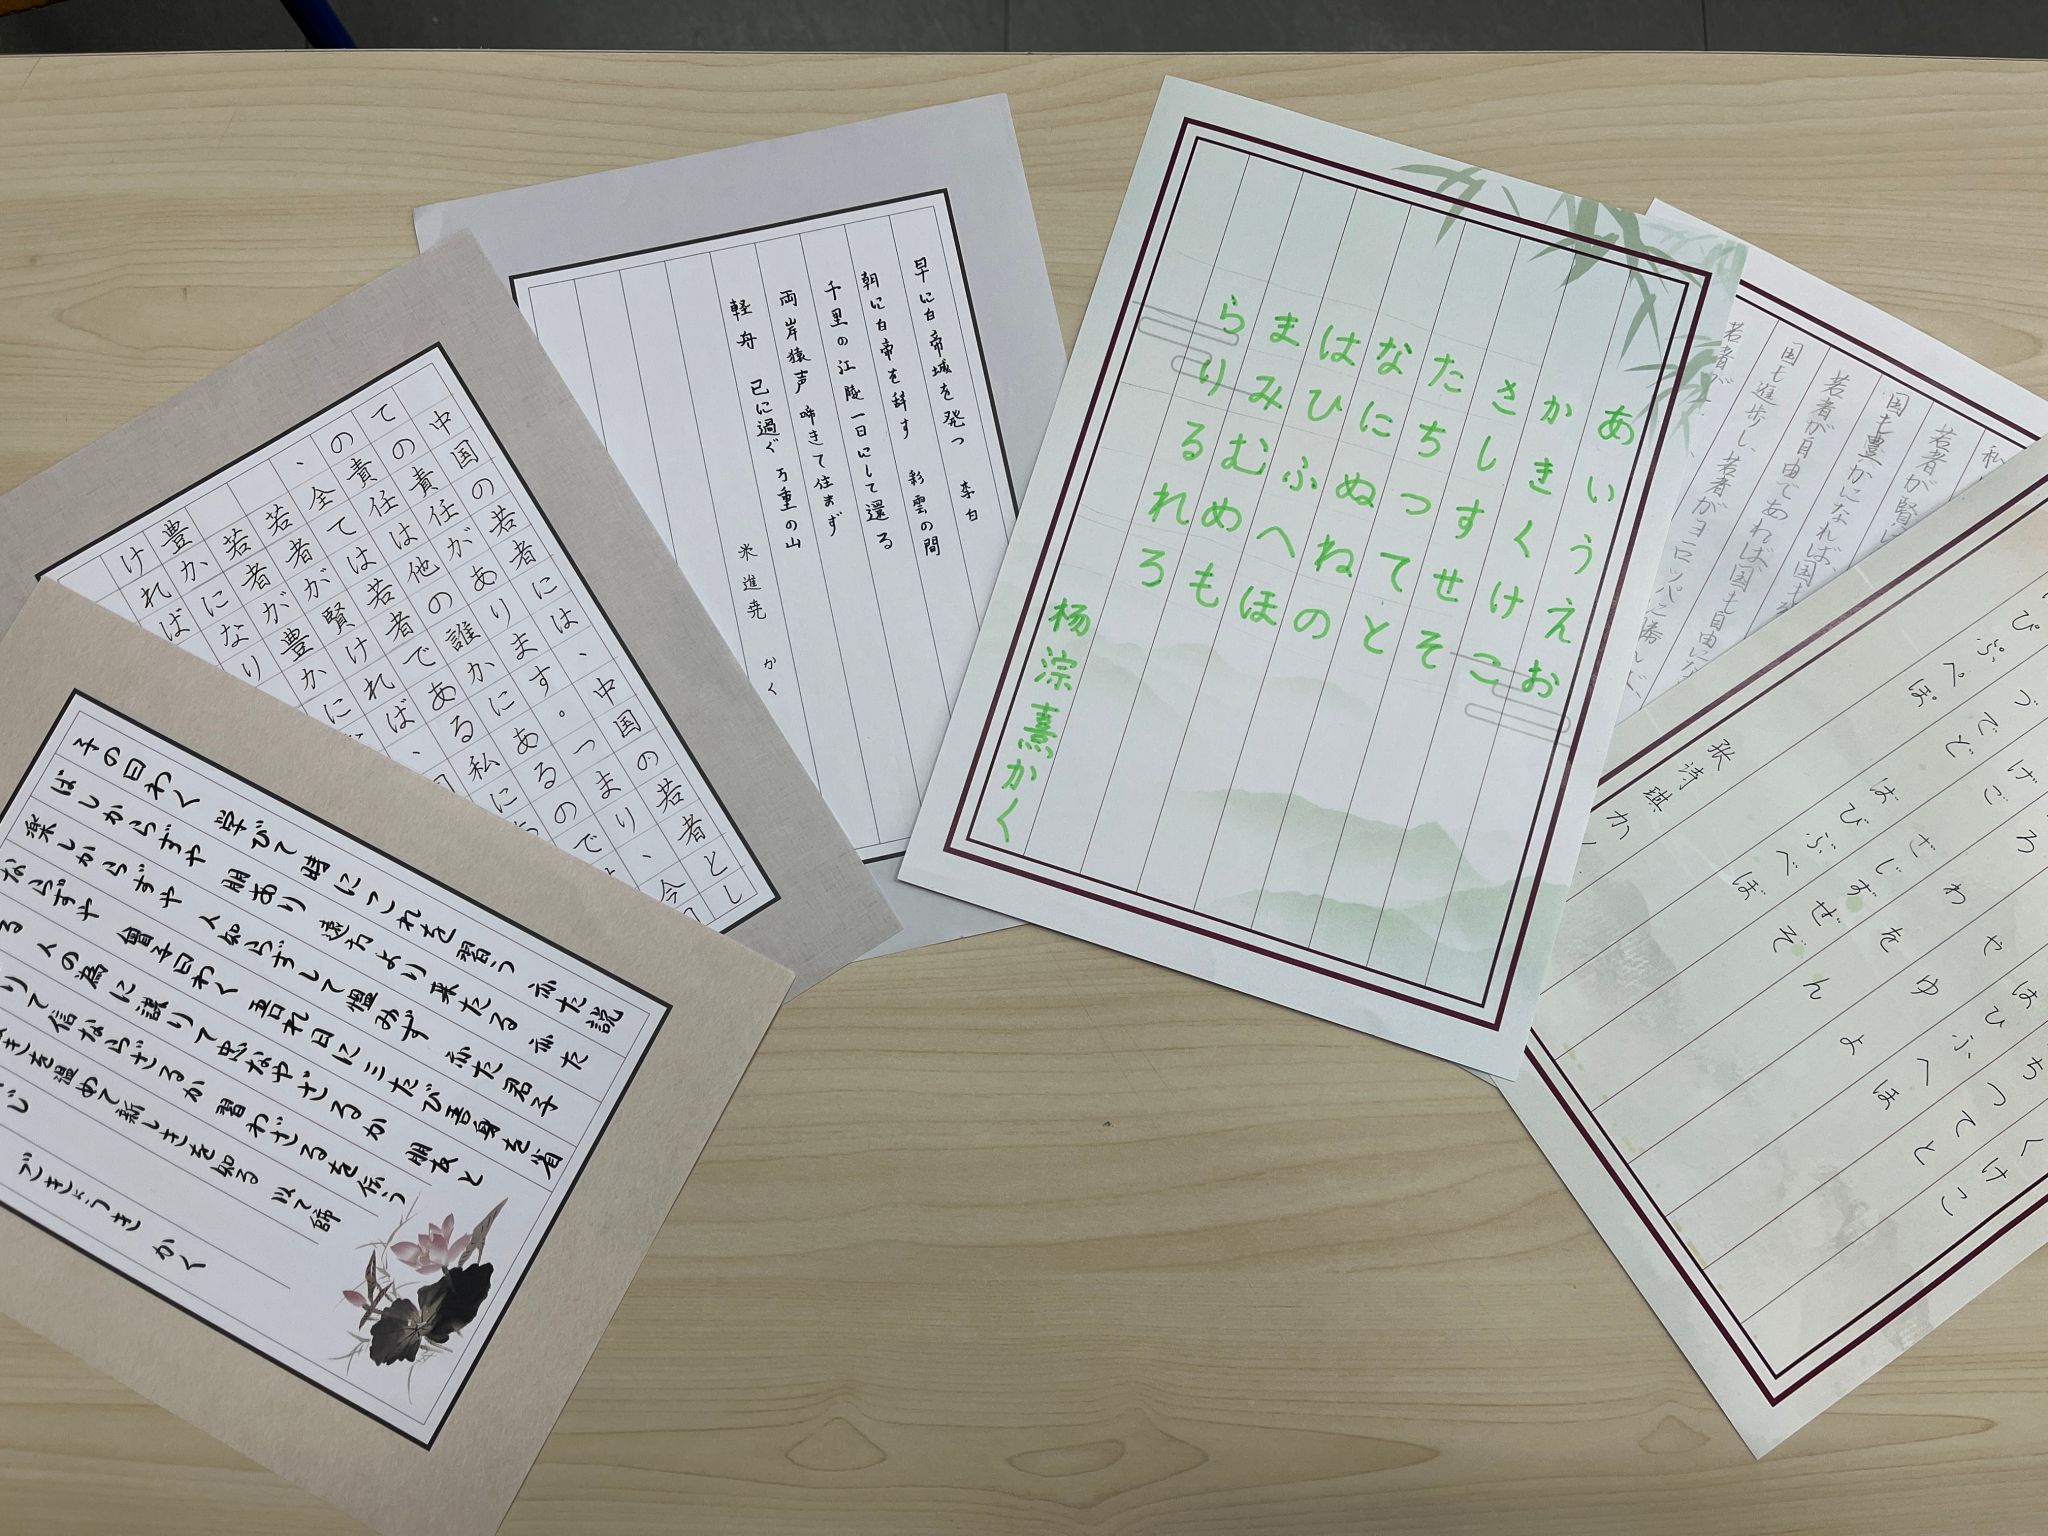 子の曰わく 学びて時にこれを習う 亦た説
ばしからずや 朋あり 遠方より来たる 亦た
楽しからずや 人知らずして慍みず 亦た君子
ならずや 曾子曰わく 吾れ日に三たび吾身を省
る 人の為に謀りて忠なやざるか 朋友と
りて信ならざるか 習わざるを伝う
きを温めて新しきを知る 以て師
ごきょうき かく
中国の若者には、中国の若者とし
ての責任があります。つまり、今
の責任は他の誰かにあるので
全ては若者である私に
、若者が賢ければ、
若者が豊かに
豊かになり
ければ
早に白帝城を発つ 李白
朝に白帝を辞す 彩雲の間
千里の江陵一日にして還る
両岸猿声 啼きて住まず
軽舟 已に過ぐ 万重の山
米進尭 かく
あいうえお
かきくけこ
さしすせそ
たちつてと
なにぬねの
はひふへほ
まみむめも
らりるれろ
杨淙熹かく
私
若者が賢
国も豊かになれば、国
若者が自由であれば、国も自由に
国も進歩し、若者がヨーロッパに勝
若者が
くけこ
ちつてと
はひふへほ
や ゆ よ
わ を ん
げご
ざじずぜぞ
づでど
ばびぶべぼ
ぴぷぺぽ
张诗琪 かく